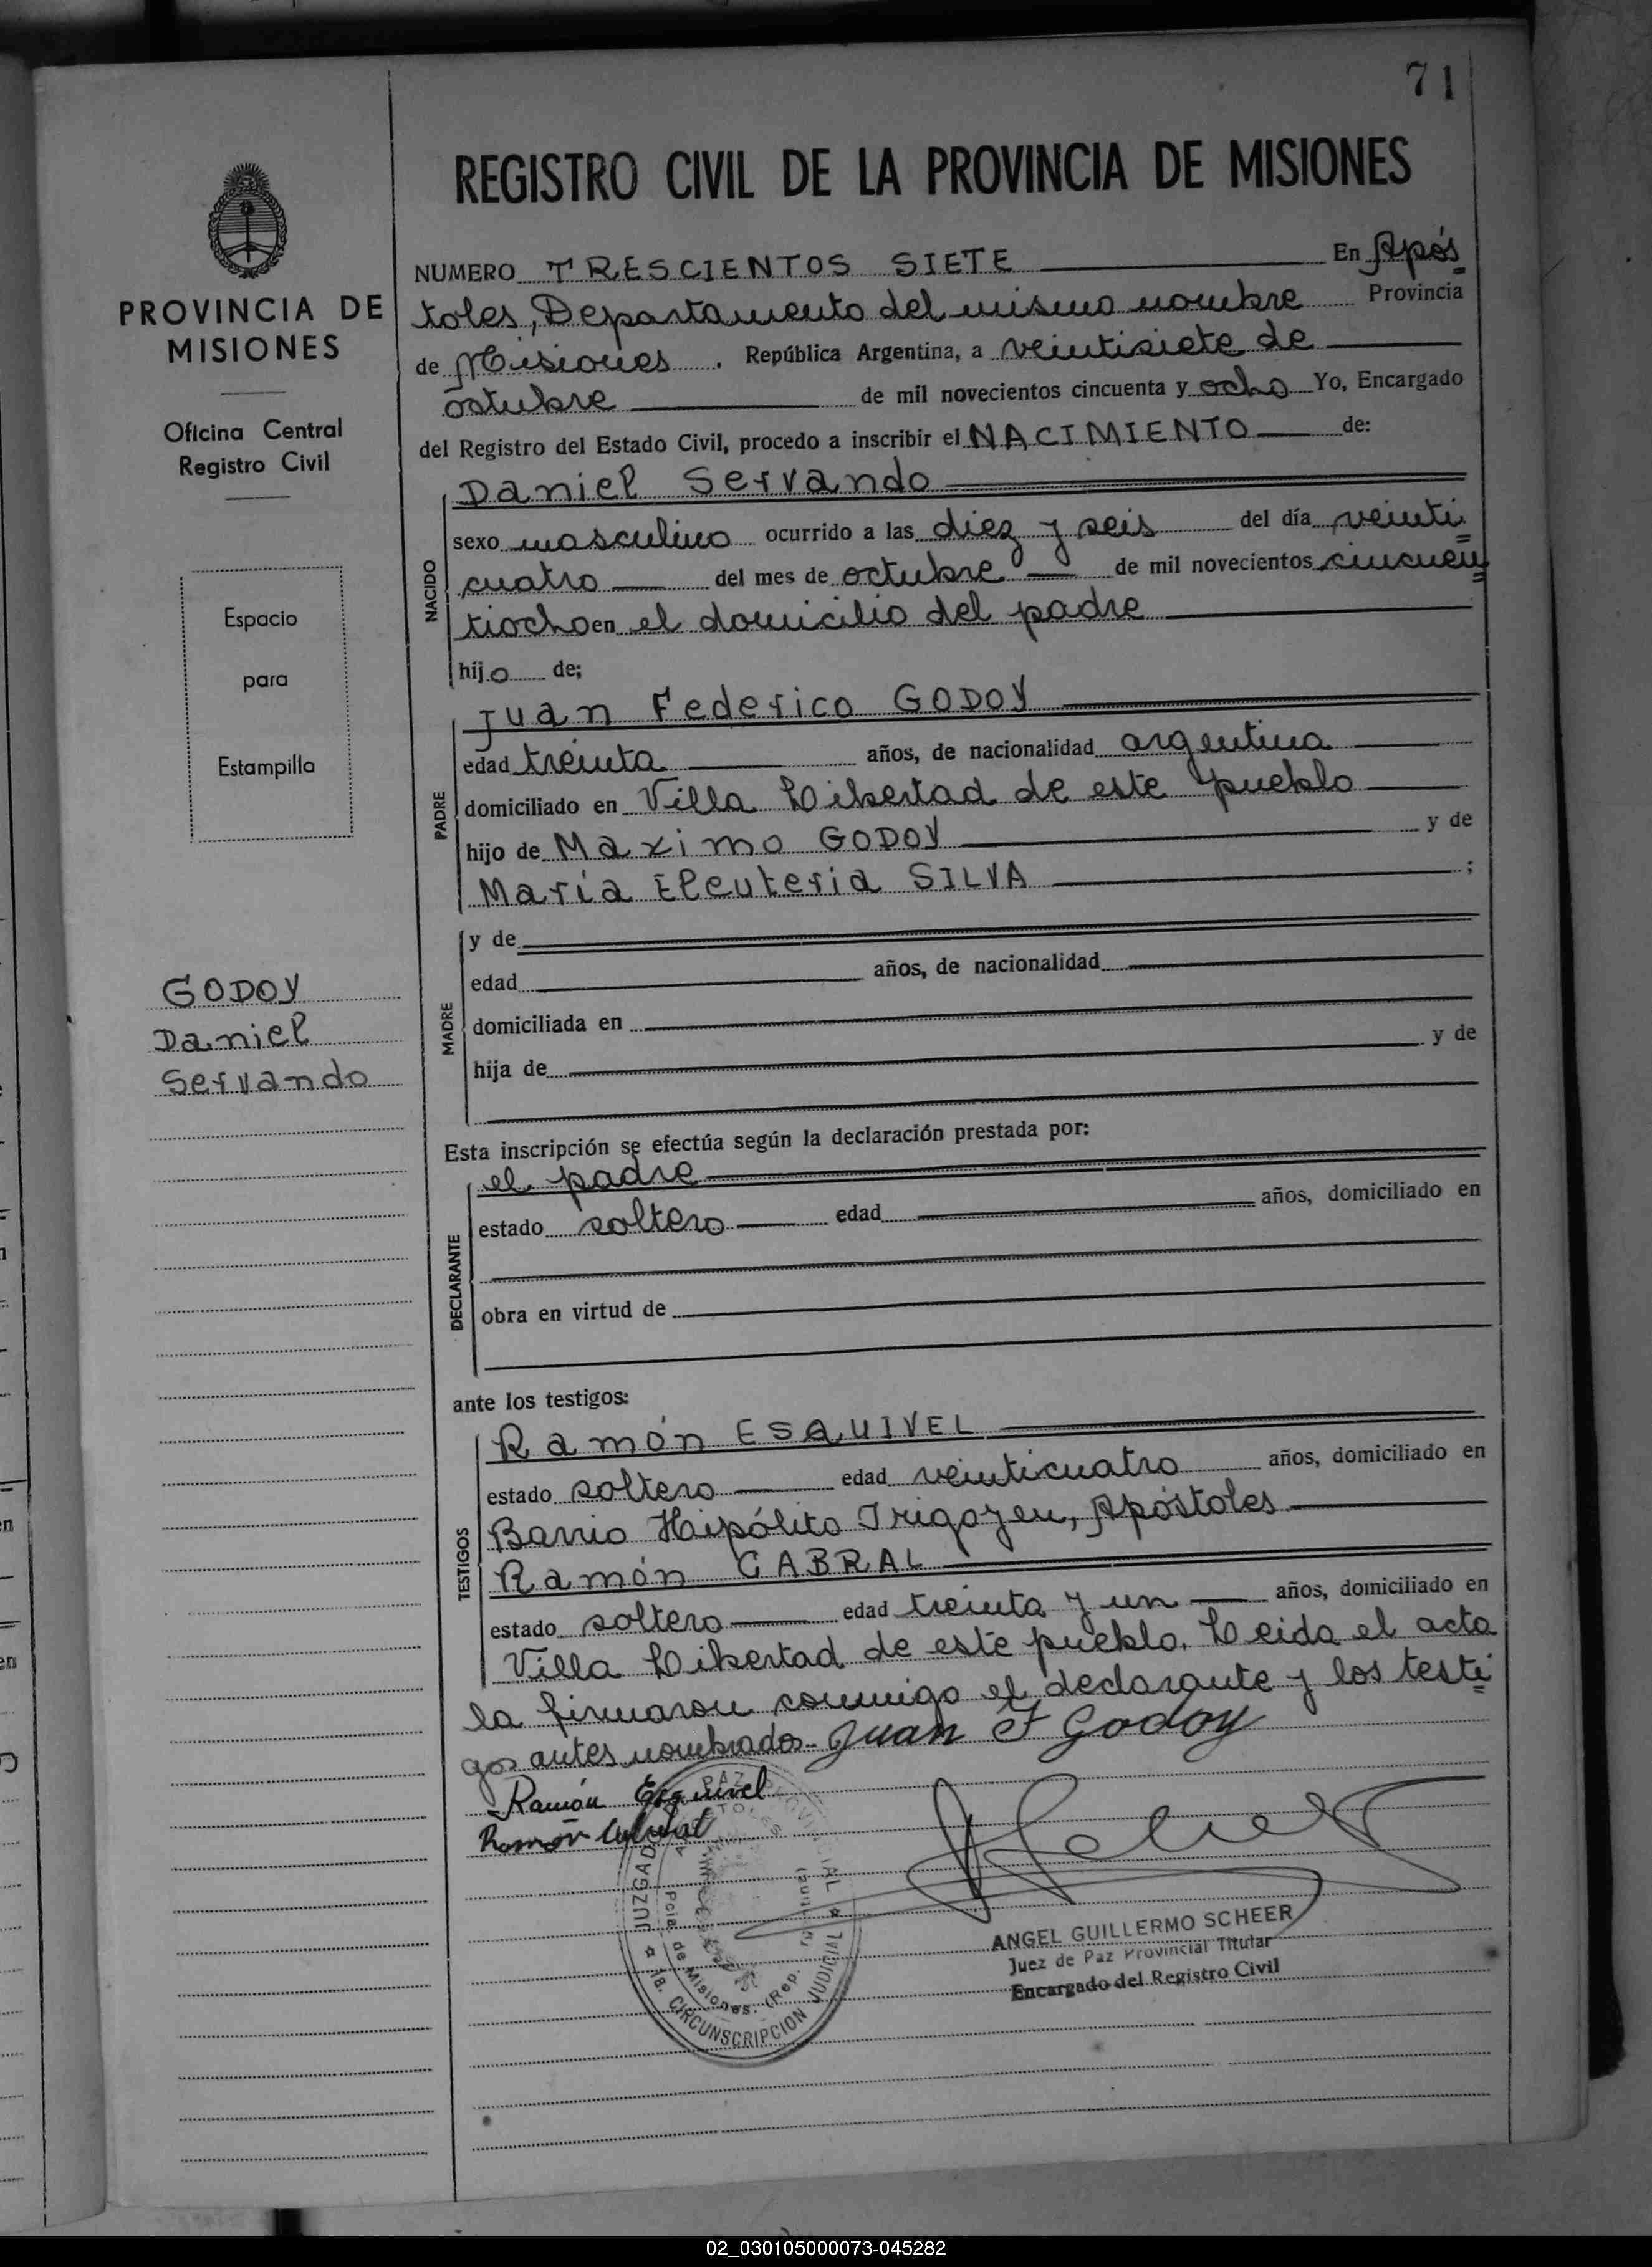 71
REGISTRO CIVIL DE LA PROVINCIA DE MISIONES
PROVINCIA DE
MISIONES
Oficina Central
Registro Civil
Espacio
para
Estampilla
GODOY
Daniel
Servando
NUMERO TRESCIENTOS SIETE En Após
toles, Departamento del mismo nombre Provincia
de Misiones, República Argentina, a veintisiete de
octubre de mil novecientos cincuenta y ocho Yo, Encargado
del Registro del Estado Civil, procedo a inscribir el NACIMIENTO de:
NACIDO
Daniel Servando
sexo masculino ocurrido a las diez y seis del día veinti
cuatro del mes de octubre de mil novecientos cincuen
tiocho en el domicilio del padre
hijo de;
PADRE
Juan Federico GODOY
edad treinta años, de nacionalidad argentina
domiciliado en Villa Libertad de este pueblo
hijo de Maximo GODOY y de
María Eleuteria SILVA ;
MADRE
y de
edad años, de nacionalidad
domiciliada en
hija de y de
Esta inscripción se efectúa según la declaración prestada por:
DECLARANTE
el padre
estado soltero edad años, domiciliado en
obra en virtud de
ante los testigos:
TESTIGOS
Ramón ESQUIVEL
estado soltero edad veinticuatro años, domiciliado en
Barrio Hipólito Irigoyen, Apóstoles
Ramón CABRAL
estado soltero edad treinta y un años, domiciliado en
Villa Libertad de este pueblo. Leida el acta
la firmaron conmigo el declarante y los testi
gos antes nombrados- Juan F Godoy
Ramón Esquivel
Ramón
JUZGADO PAZ
1a. CIRCUNSCRIPCION JUDICIAL
Pcia. de Misiones. (Rep.
ANGEL GUILLERMO SCHEER
Juez de Paz Provincial Titular
Encargado del Registro Civil
02_030105000073-045282